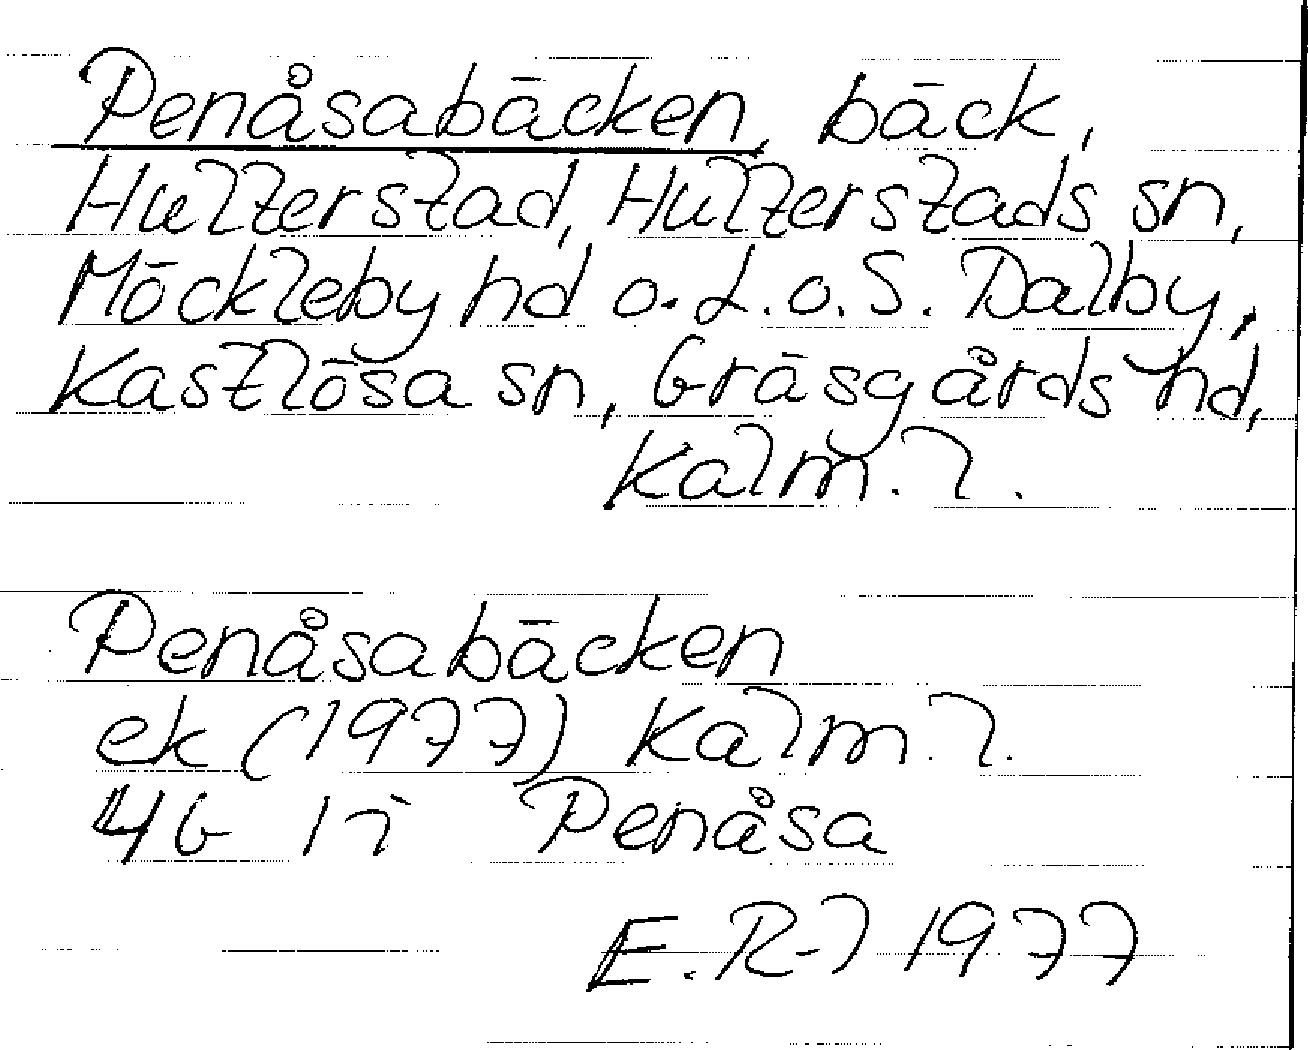 Penåsabäcken, bäck,
Hulterstad, Hulterstads sn,
Möckleby hd o. L. o. S. Dalby,
Kastlösa sn, Gräsgårds hd,
Kalm. l.
Penåsabäcken
ek (1977) Kalm. l.
4G 1i Penåsa
E. R-l 1977